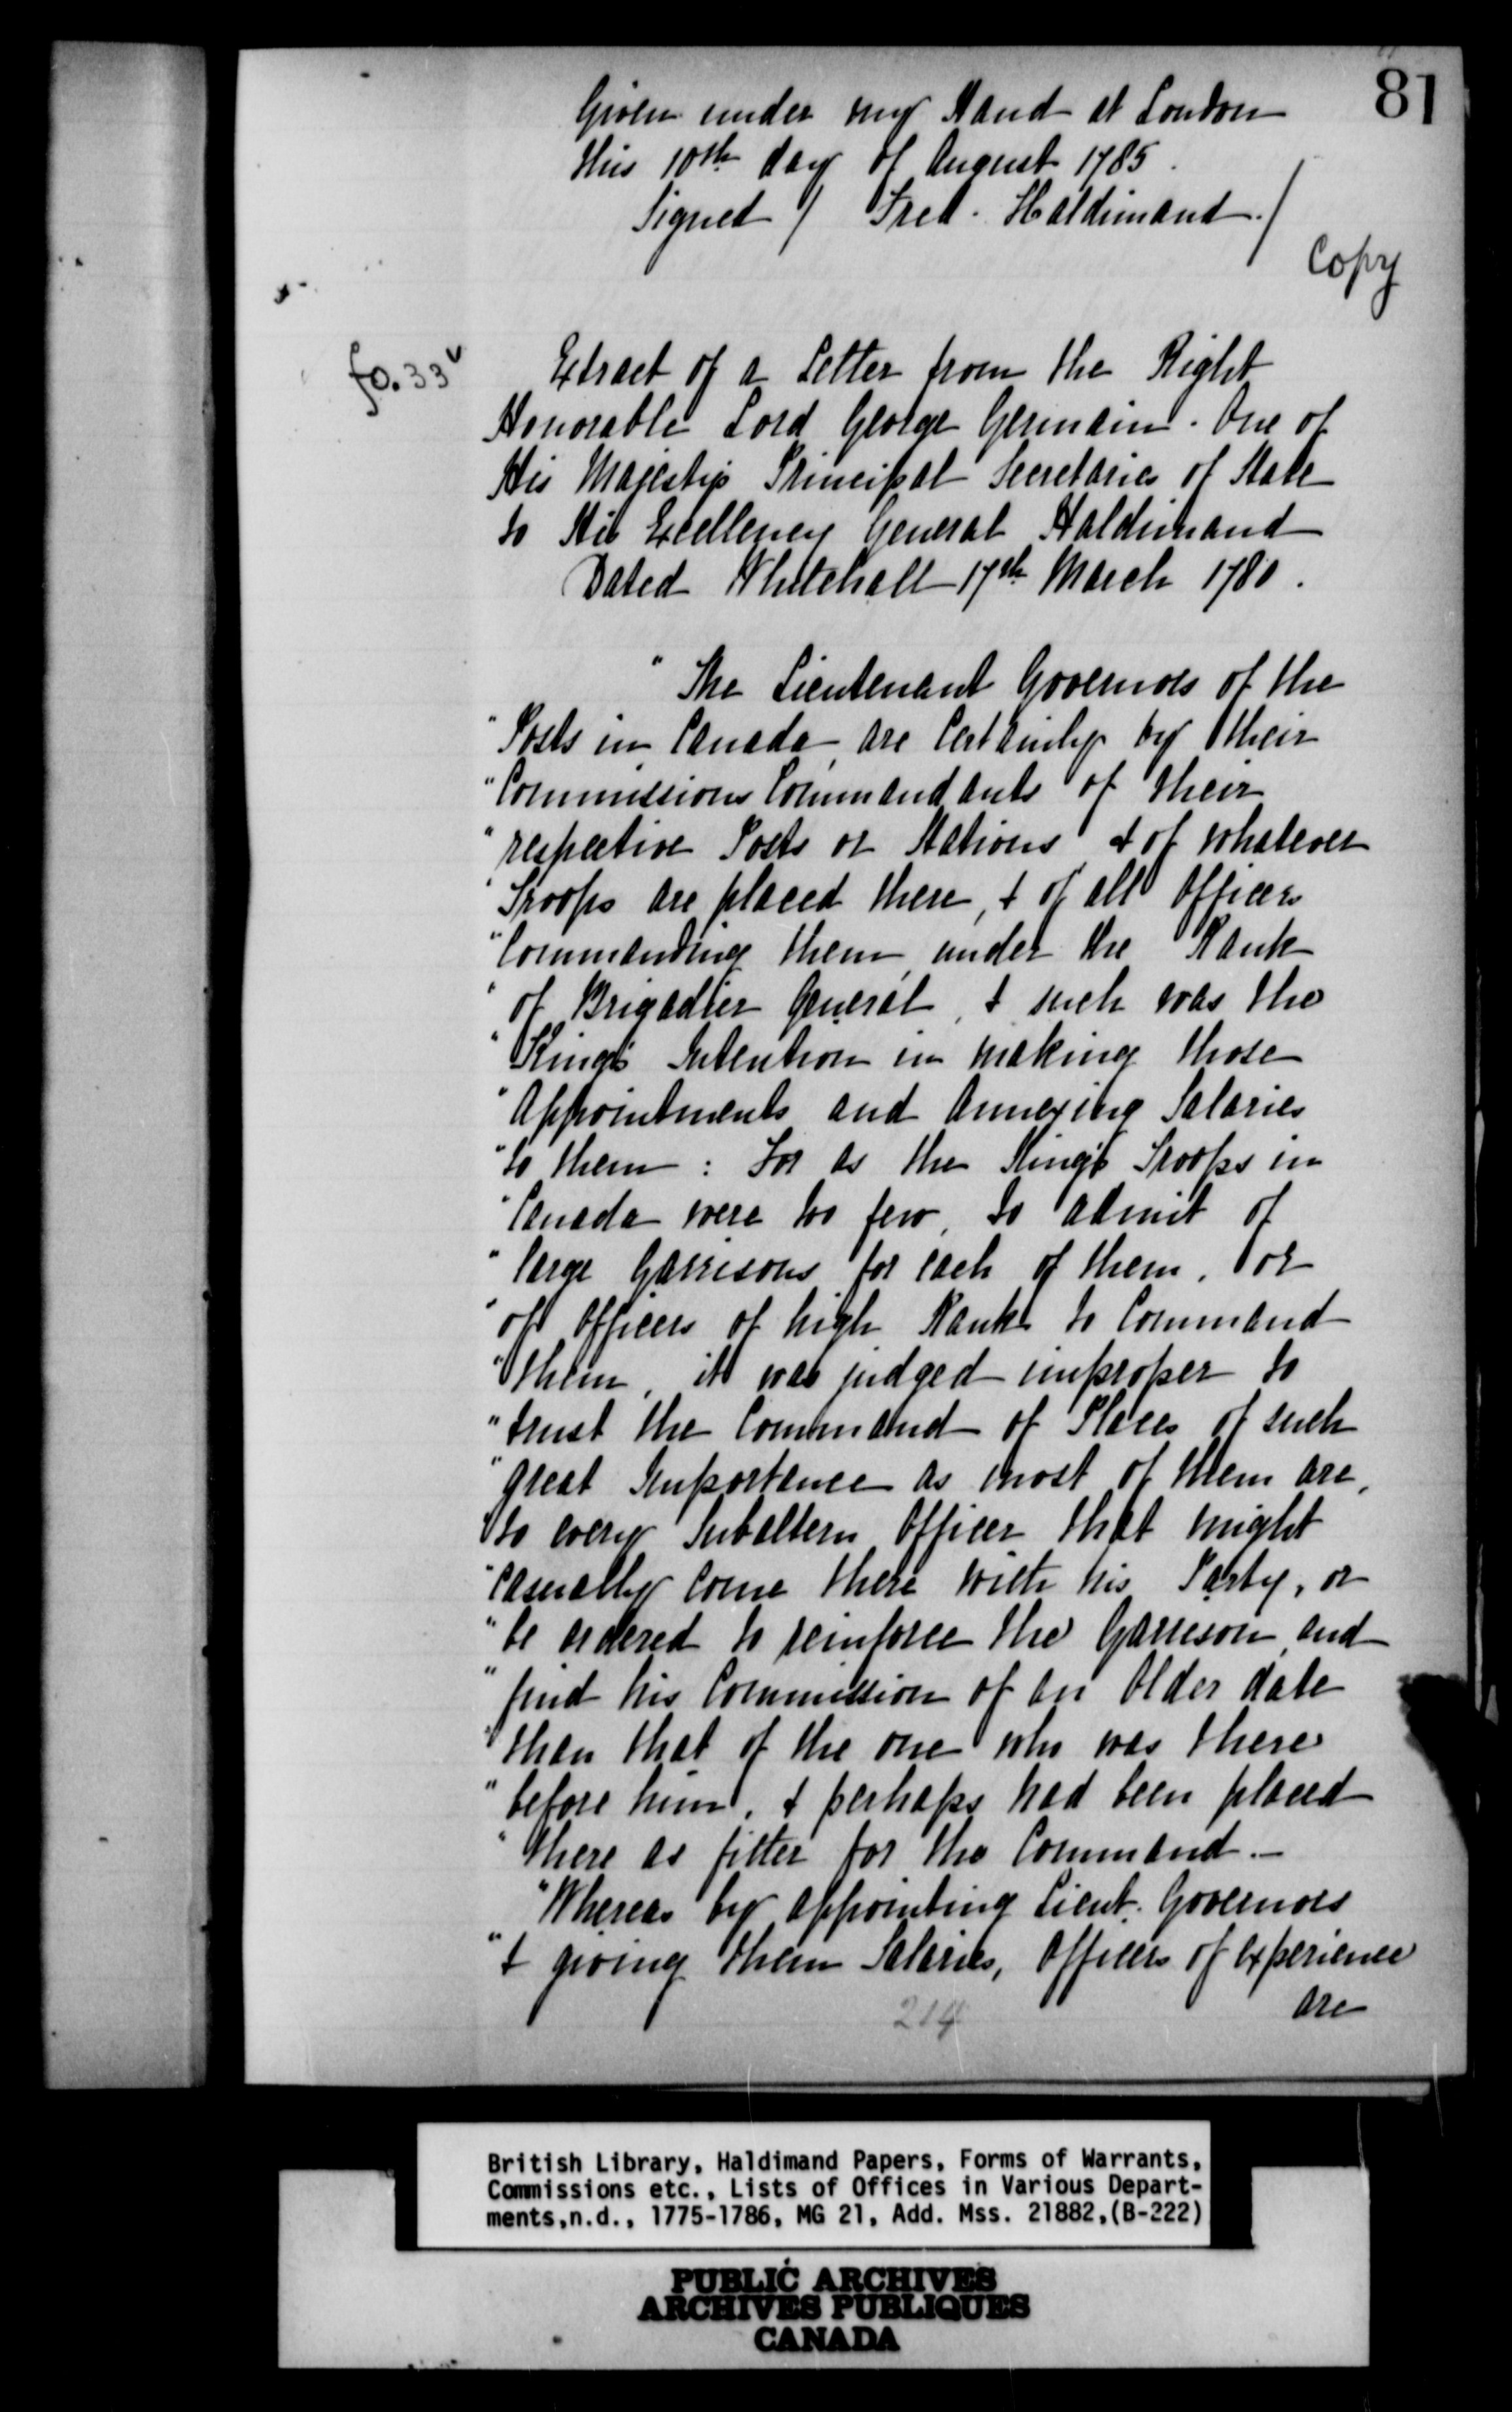 81
Given under my Hand at London
this 10th day of August 1785.
Signed / Fred. Haldimand./
Copy
fo. 33v
Extract of a Letter from the Right
Honorable Lord George Germain. One of
His Majestys Principal Secretaries of State
to His Excellency General Haldimand
Dated Whitehall 17th March 1780.
"The Lieutenant Governors of the
"Posts in Canada, are Certainly by their
"Commissions Commandants of their
"respective Posts or Stations & of whatever
"Troops are placed there, & of all Officers
"Commanding them, under the Rank
"of Brigadier General, & such was the
"King's Intention in making those
"Appointments and Annexing Salaries
"to them: For as the King's Troops in
"Canada were too few, to admit of
"large Garrisons for each of them, or
"of Officers of high Rank to Command
"them, it was judged improper to
"trust the Command of Places of such
"great Importance as most of them are,
"to every Subaltern Officer that might
"casually come there with his Party, or
"be ordered to reinforce the Garrison, and
"find his Commission of an Older date
"than that of the one who was there
"before him, & perhaps had been placed
"there as fitter for the Command.—
"Whereas by appointing Lieut. Governors
"& giving them Salaries, Officers of experience
are
214
British Library, Haldimand Papers, Forms of Warrants,
Commissions etc., Lists of Offices in Various Depart-
ments,n.d., 1775-1786, MG 21, Add. Mss. 21882,(B-222)
PUBLIC ARCHIVES
ARCHIVES PUBLIQUES
CANADA